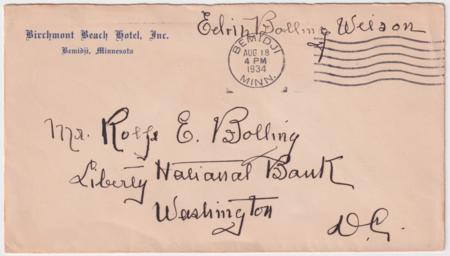 Birchmont Beach Hotel, Inc.
Bemidji, Minnesota
Bolling Wilson
BEMIDJI
AUG 18
4 PM
1934
MINN.
Mr. Rolfe E. Bolling
Liberty National Bank
Washington
D.C.